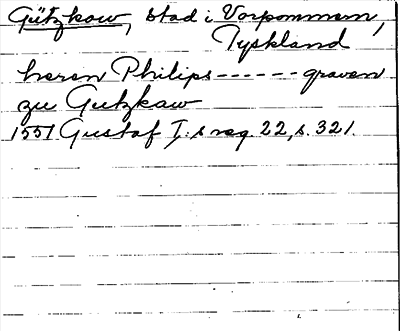 Gützkow, stad i Vorpommern,
Tyskland
heren Philips ------ graven
zu Gutzkaw
1551 Gustaf I:s reg. 22, s. 321.